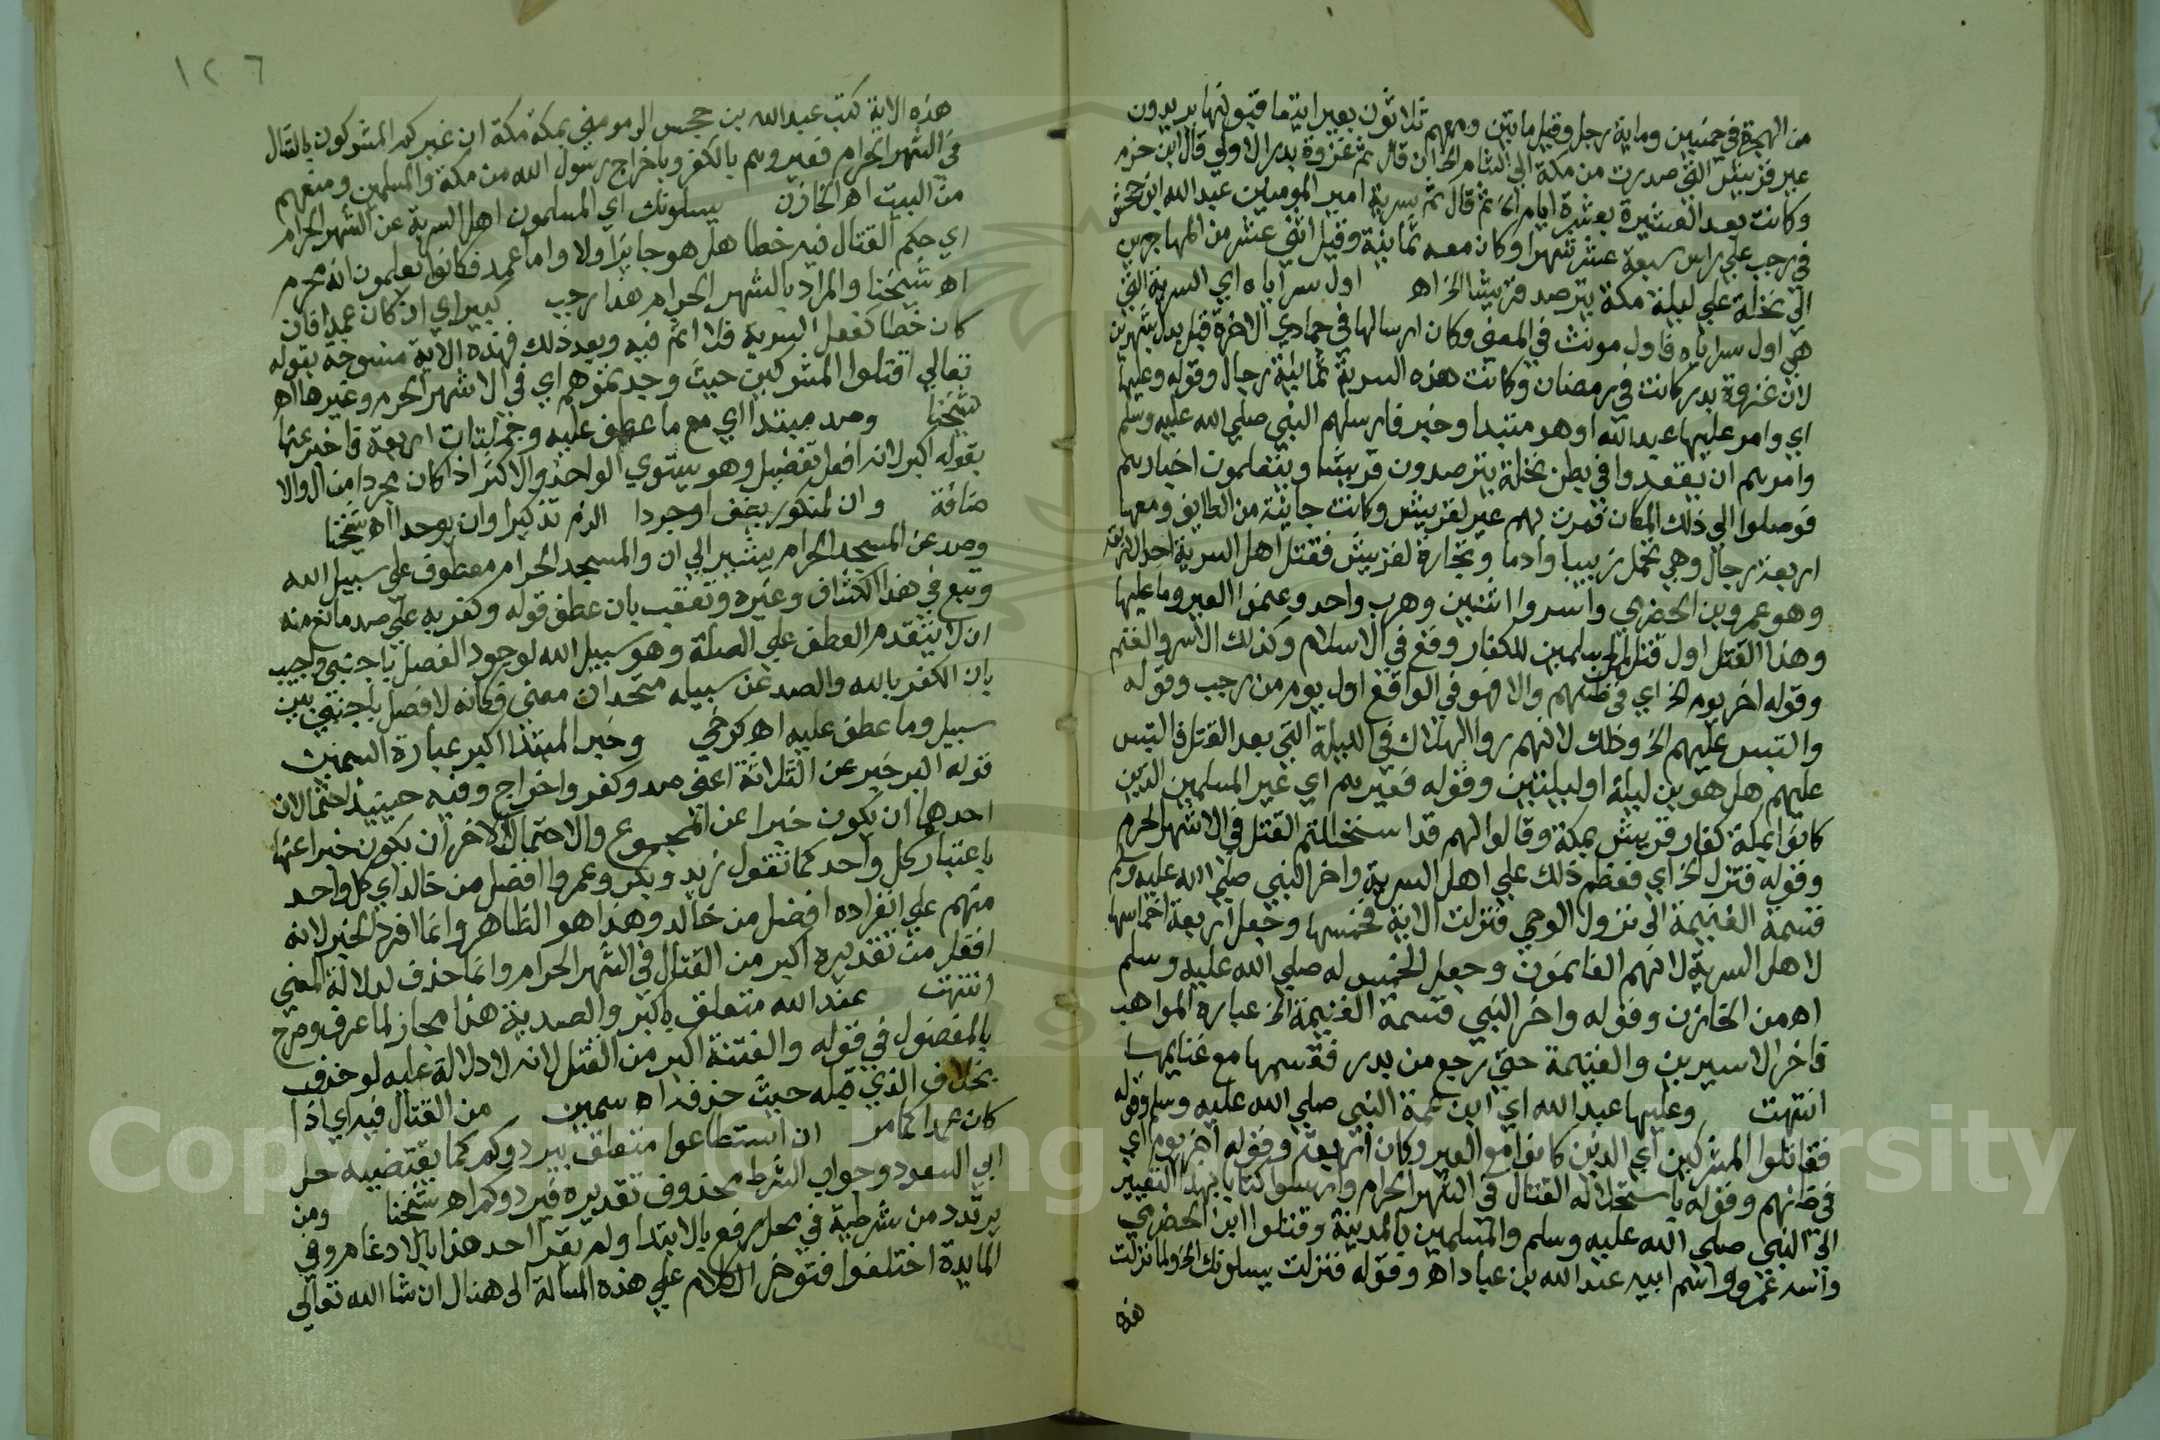 من الهجرة في خمسين وماية رجل وقيل مايتين ومعهم ثلاثون بعيرا يتعاقبونها يريدون
عير قريش التي صدرت من مكة الي الشام الخ الى ان قال ثم غزوة بدر الاولي قال ابن حزم
وكانت بعد العشيرة بعشرة ايام الخ ثم قال ثم سرية امير المومنين عبد الله ابن جحش
في رجب علي راس سبعة عشر شهرا وكان معه ثمانية وقيل اثني عشر من المهاجرين
الي نخلة علي ليلة مكة يترصد قريشا الخ اه اول سراياه اي السرية التي
هي اول سراياه فاول مونث في المعني وكان ارسالها في جمادي الاخرة قبل بدر بشهرين
لان غزوة بدر كانت في رمضان وكانت هذه السرية ثمانية رجال وقوله وعليها
اي وامر عليها عبد الله اوهو مبتدا وخبر فارسلهم النبي صلي الله عليه وسلم
وامرهم ان يقعدوا في بطن نخلة يترصدون قريشا ويتعلمون اخبارهم
فوصلوا الي ذلك المكان فمرت بهم عير لقريش وكانت جايئة من الطايف ومعها
اربعة رجال وهي تحمل زبيبا وادما وتجارة لقريش فقتل اهل السرية احد الاربعة
وهو عمرو بن الحضري واسروا اثنين وهرب واحد وغنموا العير وما عليها
وهذا القتل اول قتل المسلمين للكفار وقع في الاسلام وكذلك الاسر والغنم
وقوله اخر يوم الخ اي في ظنهم والا فهو في الواقع اول يوم من رجب وقوله
والتبس عليهم الخ وذلك لانهم رواالهلال في الليلة التي بعد القتل فالتبس
عليهم هل هو بن ليلة او ليلتين وقوله فعيرهم اي عير المسلمين الذين
كانوا بمكة كفار قريش بمكة وقالوا لهم قد استحللتم القتل في الاشهر الحرم
وقوله فنزل الخ اي فعظم ذلك علي اهل السرية واخر النبي صلي الله عليه وسلم
قسمة الغنيمة الى نزول الوحي فنزلت الاية فخمسها وجعل اربعة اخماسها
لاهل السرية لانهم الغانمون وجعل الخمس له صلي الله عليه وسلم
اه من الخازن وقوله واخر النبي قسمة الغنيمة الخ عبارة المواهب
فاخر الاسيرين والغنيمة حتي رجع من بدر فقسمها مع غنايمها
انتهت وعليها عبد الله اي ابن عمة النبي صلي الله عليه وسلم وقوله
فقاتلوا المشركين اي الذين كانوا مع العير وكان اربعة وقوله اخر يوم اي
في ظنهم وقوله باستحلاله القتال في الشهر الحرام وارسلوا كتابا بهذا التعيير
الى النبي صلي الله عليه وسلم والمسلمين بالمدينة وقتلوا ابن الحضري
واسه عمرو واسم ابيه عبد الله بن عباد اه وقوله فنزلت يسلونك الخ ولما نزلت
هذه
١٢٦
هذه الاية كتب عبد الله بن جحش الى مومني بمكة مكة ان عيركم المشركون بالقتال
في الشهر الحرام فعيروهم بالكفر وباخراج رسول الله من مكة والمسلمين ومنعهم
من البيت اه الخازن يسلونك اي المسلمون اهل السرية عن الشهر الحرام
اي حكم القتال فيه خطا هل هو جايز اولا واما عمد فكانوا يعلمون انه محرم
اه شيخنا والمراد بالشهر الحرام هذا رجب كبير اي ان كان عمدا فان
كان خطا كفعل السرية فلا اثم فيه وبعد ذلك فهذه الاية منسوخة بقوله
تعالي اقتلوا المشركين حيث وجدتموهم اي في الاشهر الحرم وغيرها اه
شيخنا وصد مبتدا اي مع ما عطف عليه وجملتها اربعة فاخبر عنها
بقوله اكبر لانه افعل تفضيل وهو يستوي الواحد والاكثر اذا كان مجردا من ال والا
ضافة وان لمنكور يضف او جردا الزم تذكيرا وان يوحدا اه شيخنا
وصد عن المسجد الحرام يشير الي ان والمسجد الحرام معطوف علي سبيل الله
وتبع في هذا الكشاف وغيره وتعقب بان عطف قوله وكفر به علي صد مانع منه
ان لا يتقدم العطف علي الصلة وهو سبيل الله لوجود الفصل باجنبي واجيب
بان الكفر بالله والصد عن سبيله متحدان معني فكانه لا فصل باجنبي بين
سبيل وما عطف عليه اه كرخي وخبر المبتدا اكبر عبارة السمين
قوله اكبر خبر عن الثلاثة اعني صد وكفر واخراج وفيه حينيذ احتمالان
احدهما ان يكون خبرا عن المجموع والاحتمال الاخر ان يكون خبرا عنها
باعتبار كل واحد كما تقول زيد وبكر وعمروا افضل من خالد اي كل واحد
منهم علي انفراده افضل من خالد وهذا هو الظاهر وانما افرد الخبر لانه
افعل من تقديره اكبر من القتال في الشهر الحرام وانما حذف لدلالة المعني
انتهت عند الله متعلق باكبر والصدية هنا مجاز لما عرف وصرح
بالمفضول في قوله والفتنة اكبر من القتل لانه لا دلالة عليه لو حذف
بخلاف الذي قبله حيث حذف اه سمين من القتال فيه اي اذا
كان عمدا كما مر ان استطاعوا متعلق بيردوكم كما يقتضيه حل
ابي السعود وجواب الشرط محذوف تقديره فيردوكم اه شيخنا ومن
يرتدد من شرطية في محل رفع بالابتدا ولم يقرا احد هنا بالادغام وفي
المايدة اختلفوا فنوخر الكلام علي هذه المسالة الى هنال ان شا الله تعالي